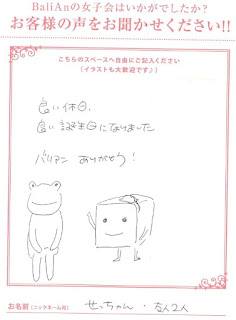 BaliAnの女子会はいかがでしたか?
お客様の声をお聞かせください!!
こちらのスペースへ自由にご記入ください
(イラストも大歓迎です♪)
良い休日、
良い誕生日になりました
バリアン ありがとう!
お名前(ニックネーム可) せっちゃん・友人2人